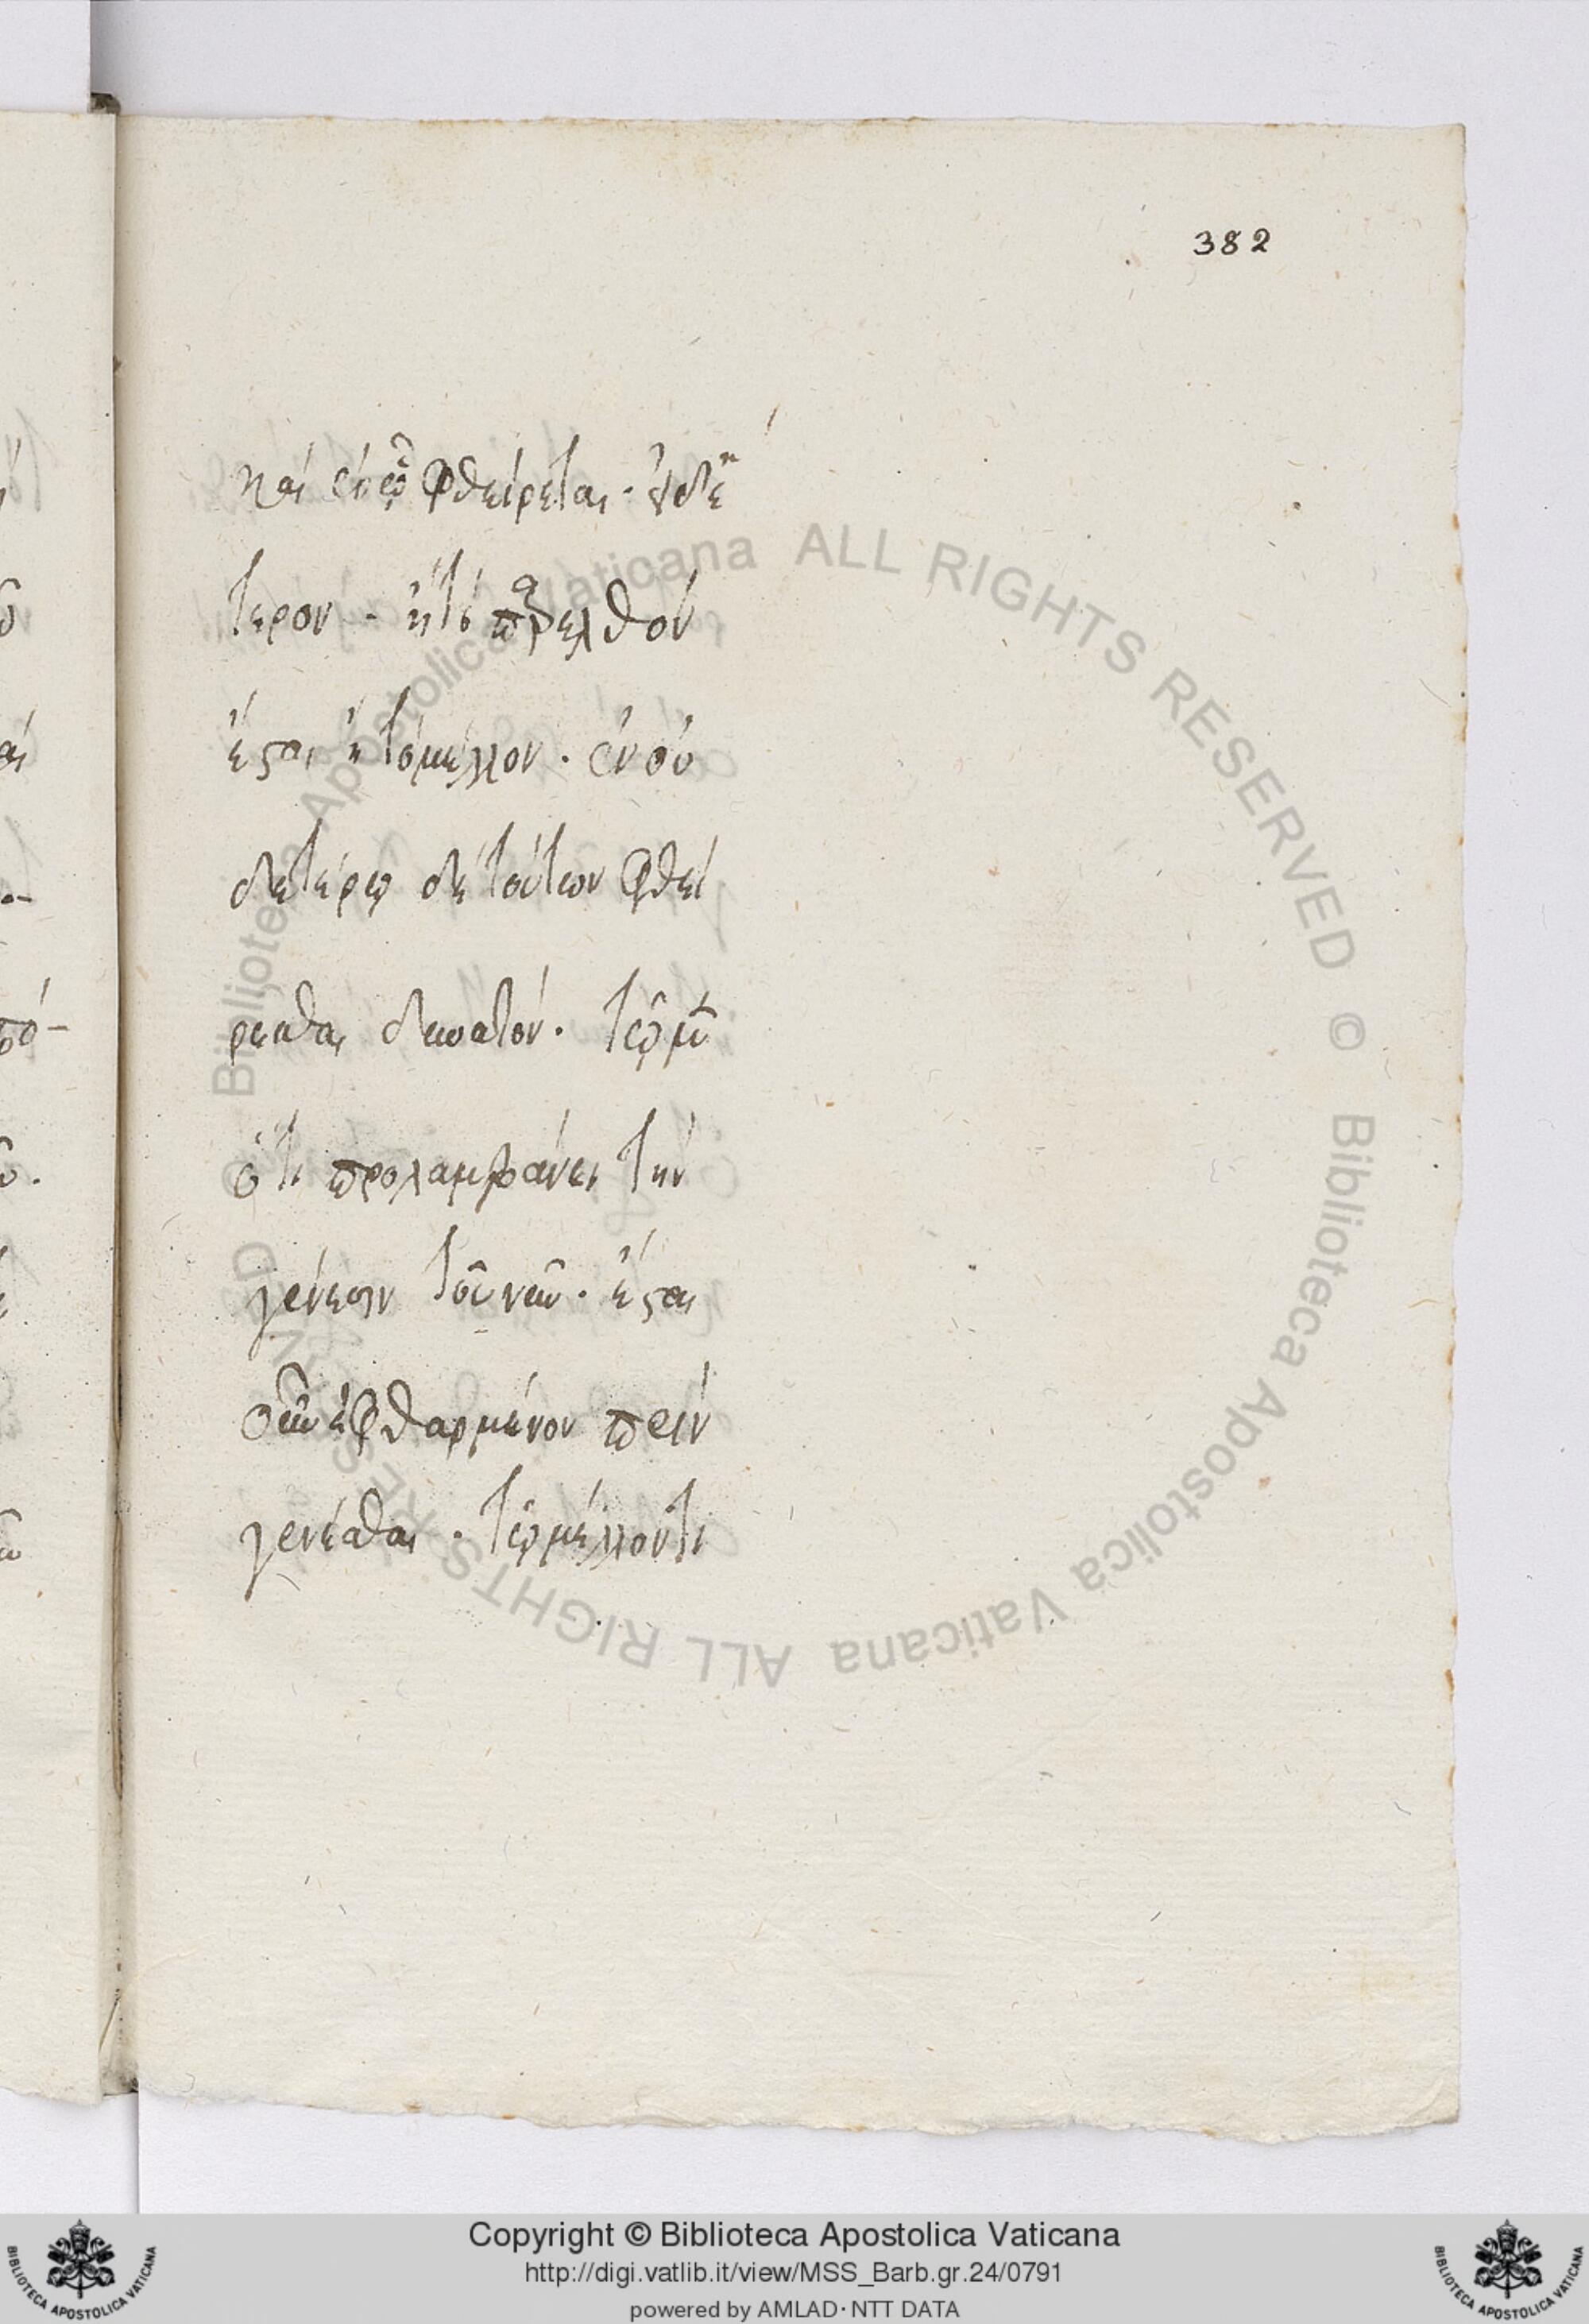 382
καὶ ἐν ᾧ φθείρεται. οὐδὲν
τερον. ἢ τὸ παρελθὸν
ἔσται ἢ τὸ μέλλον. ἐν οὐ
δετέρῳ δὲ τούτων φθεί
ρεσθαι δυνατόν. τῷ μὲν
ὅτι προλαμβάνει τὴν
γένεσιν τοῦ νῦν. ἔσται
οὖν ἐφθαρμένον πρὶν
γενέσθαι. τῷ μέλλοντι
Biblioteca Apostolica Vaticana ALL RIGHTS RESERVED © Biblioteca Apostolica Vaticana ALL RIGHTS RESERVED ©
Copyright © Biblioteca Apostolica Vaticana
http://digi.vatlib.it/view/MSS_Barb.gr.24/0791
powered by AMLAD·NTT DATA
BIBLIOTECA APOSTOLICA VATICANA
BIBLIOTECA APOSTOLICA VATICANA